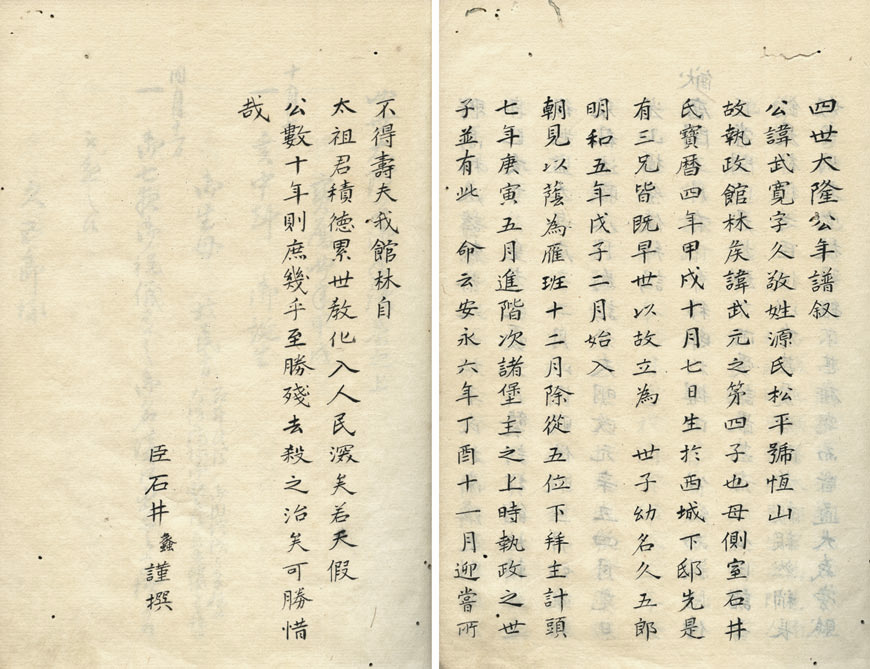 四世大隆公年譜叙
公諱武寬字久敬姓源氏松平號恆山
故執政館林矦諱武元之第四子也母側室石井
氏寶曆四年甲戌十月七日生於西城下邸先是
有三兄皆既早世以故立為　世子幼名久五郎
明和五年戊子二月始入
朝見以蔭為雁班十二月除從五位下拜主計頭
七年庚寅五月進階次諸堡主之上時執政之世
子並有此　命云安永六年丁酉十一月迎嘗所
不得壽夫我館林自
太祖君積德累世教化入人民深矣若天假
公數十年則庶幾乎至勝殘去殺之治矣可勝惜
哉
臣石井蠡謹撰